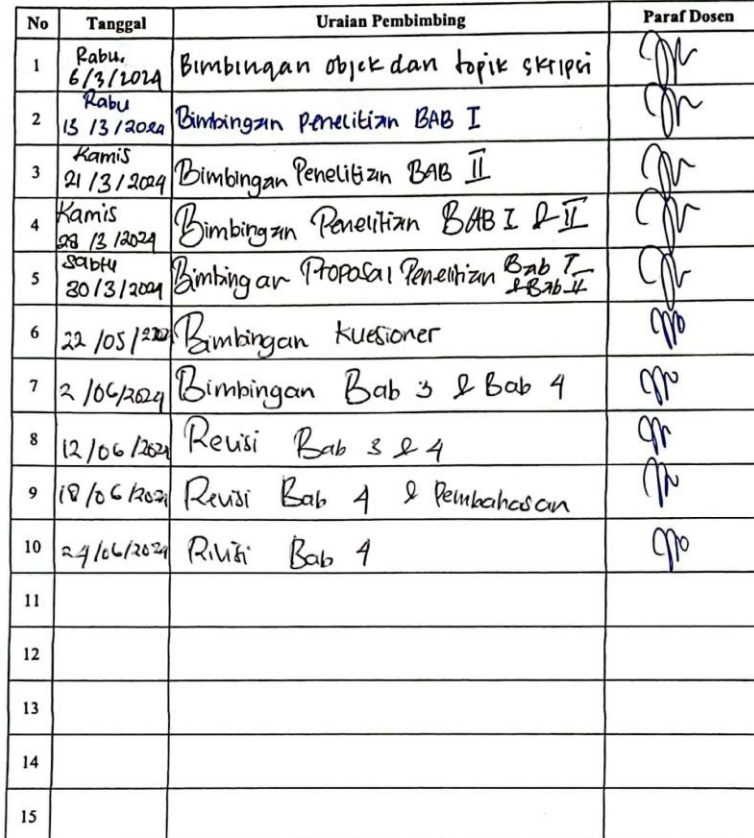 No Tanggal Uraian Pembimbing Paraf Dosen
1 Rabu, 6/3/2024 Bimbingan objek dan topik skripsi
2 Rabu 13/3/2024 Bimbingan Penelitian BAB I
3 Kamis 21/3/2024 Bimbingan Penelitian BAB II
4 Kamis 28/3/2024 Bimbingan Penelitian BAB I & II
5 Sabtu 30/3/2024 Bimbingan Proposal Penelitian Bab I & Bab II
6 22/05/ Bimbingan Kuesioner
7 2/06/2024 Bimbingan Bab 3 & Bab 4
8 12/06/2024 Revisi Bab 3 & 4
9 18/06/2024 Revisi Bab 4 & Pembahasan
10 24/06/2024 Revisi Bab 4
11
12
13
14
15